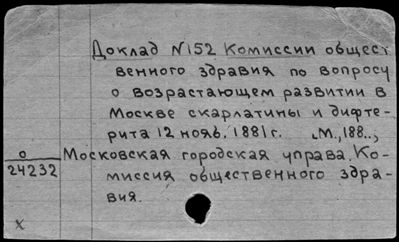 Доклад N152 Комиссии общест
венного здравия по вопросу
о возрастающем развитии в
Москве скарлатины и дифте-
рита 12 нояб. 1881 г. М., 188..,
о
24232
Московская городская управа. Ко-
миссия общественного здра-
вия.
x